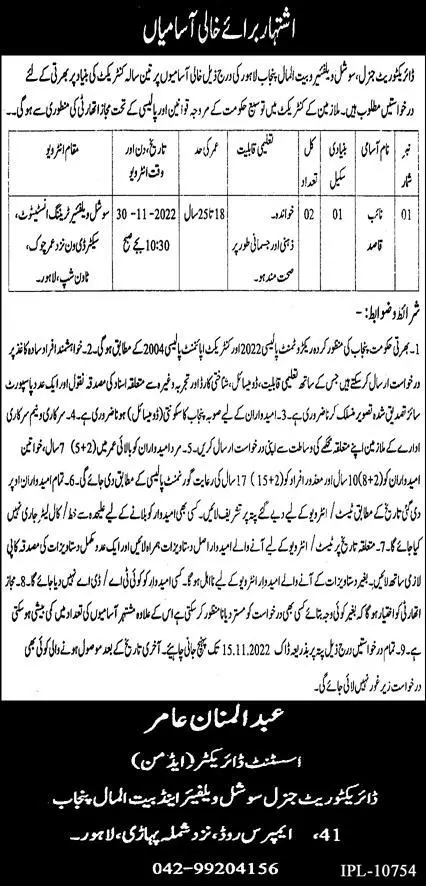 اشتہار برائے خالی آسامیاں
ڈائریکٹوریٹ جنرل، سوشل ویلفیئر و بیت المال پنجاب لاہور کی درج ذیل خالی آسامیوں پر تین سالہ کنٹریکٹ کی بنیاد پر بھرتی کے لئے
درخواستیں مطلوب ہیں۔ ملازمین کے کنٹریکٹ میں توسیع حکومت کے مروجہ قوانین اور پالیسی کے تحت مجاز اتھارٹی کی منظوری سے ہوگی۔
نمبر شمار | نام آسامی | بنیادی سکیل | کل تعداد | تعلیمی قابلیت | عمر کی حد | تاریخ، دن اور وقت انٹرویو | مقام انٹرویو
01 | نائب قاصد | 01 | 02 | خواندہ۔ ذہنی اور جسمانی طور پر صحت مند ہو۔ | 18 تا 25 سال | 30-11-2022 10:30 بجے صبح | سوشل ویلفیئر ٹریننگ انسٹیٹیوٹ، سیکٹر ڈی ون نزد عمر چوک، ٹاؤن شپ، لاہور۔
شرائط و ضوابط:-
1۔ بھرتی حکومت پنجاب کی منظور کردہ ریکروٹمنٹ پالیسی 2022 اور کنٹریکٹ اپائنٹمنٹ پالیسی 2004 کے مطابق ہوگی۔ 2۔ خواہشمند افراد سادہ کاغذ پر
درخواست ارسال کر سکتے ہیں جس کے ساتھ تعلیمی قابلیت، ڈومیسائل، شناختی کارڈ اور تجربہ وغیرہ سے متعلقہ اسناد کی مصدقہ نقول اور ایک عدد پاسپورٹ
سائز تصدیق شدہ تصویر منسلک کرنا ضروری ہے۔ 3۔ امیدواران کے لیے صوبہ پنجاب کا سکونتی (ڈومیسائل) ہونا ضروری ہے۔ 4۔ سرکاری و نیم سرکاری
ادارے کے ملازمین اپنے متعلقہ محکمے کی وساطت سے اپنی درخواست ارسال کریں۔ 5۔ مرد امیدواران کو بالائی عمر میں (5+2) 7 سال، خواتین
امیدواران کو (8+2) 10 سال اور معذور افراد کو (15+2) 17 سال کی رعایت گورنمنٹ پالیسی کے مطابق دی جائے گی۔ 6۔ تمام امیدواران اوپر
دی گئی تاریخ کے مطابق ٹیسٹ/انٹرویو کے لیے دیے گئے پتہ پر تشریف لائیں۔ کسی بھی امیدوار کو بلانے کے لیے علیحدہ سے خط/کال لیٹر جاری نہیں
کیا جائے گا۔ 7۔ متعلقہ تاریخ پر ٹیسٹ/انٹرویو کے لیے آنے والے امیدوار اصل دستاویزات ہمراہ لائیں اور ایک عدد مکمل دستاویزات کی مصدقہ کاپی
لازمی ساتھ لائیں۔ بغیر دستاویزات کے آنے والے امیدوار انٹرویو کے لیے نااہل ہوگا۔ کسی امیدوار کو کوئی ٹی اے/ڈی اے نہیں دیا جائے گا۔ 8۔ مجاز
اتھارٹی کو اختیار ہوگا کہ بغیر کوئی وجہ بتائے کسی بھی درخواست کو مسترد یا منظور کر سکتی ہے اس کے علاوہ مشتہر آسامیوں کی تعداد میں کمی بیشی ہو سکتی
ہے۔ 9۔ تمام درخواستیں درج ذیل پتہ پر بذریعہ ڈاک 15.11.2022 تک پہنچ جانی چاہیئے۔ آخری تاریخ کے بعد موصول ہونے والی کوئی بھی
درخواست زیر غور نہیں لائی جائے گی۔
عبدالمنان عامر
اسسٹنٹ ڈائریکٹر (ایڈمن)
ڈائریکٹوریٹ جنرل سوشل ویلفیئر اینڈ بیت المال پنجاب
41، ایمپرس روڈ، نزد شملہ پہاڑی، لاہور۔
042-99204156
IPL-10754